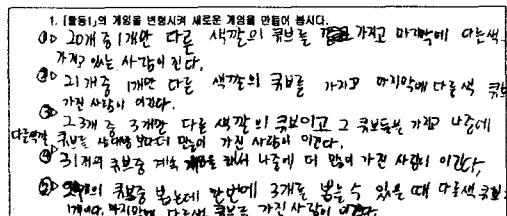 1. [활동1]의 게임을 변형시켜 새로운 게임을 만들어 봅시다.
① 20개 중 1개만 다른 색깔의 큐브를 가지고 마지막에 다른색
가지고 있는 사람이 진다.
② 21개 중 1개만 다른 색깔의 큐브를 가지고 마지막에 다른 색 큐브
가진 사람이 이긴다.
③ 23개 중 3개만 다른 색깔의 큐브이고 그 큐브들을 가지고 나중에
다른색깔 큐브를 상대방보다 더 많이 가진 사람이 이긴다.
④ 31개의 큐브중 계속 해서 나중에 더 많이 가진 사람이 이긴다,
⑤ 큐브중 뽑는데 한번에 3개를 뽑는 수 있을 때 다른색 큐브는
1개이다. 마지막에 다른색 큐브를 가진 사람이 이긴다.